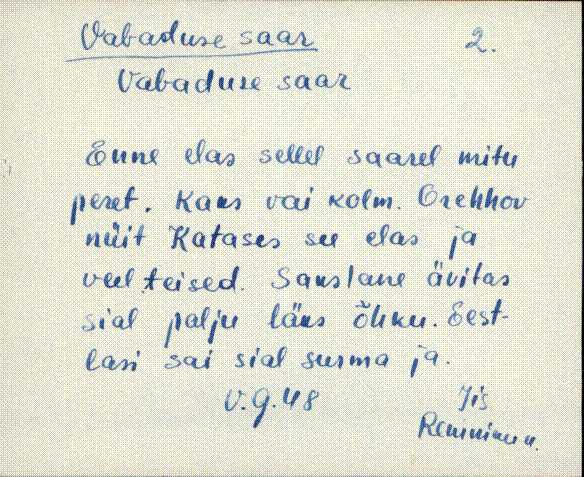 Vabaduse saar
2.
Vabaduse saar
Enne elas sellel saarel mitu
peret. Kaks vai kolm. Orehhov
nüit Katases su elas ja
veel teised. Sakslane ävitas
sial palju läks õhku. Eest-
lasi sai sial surma ja.
V.9.48
Jis